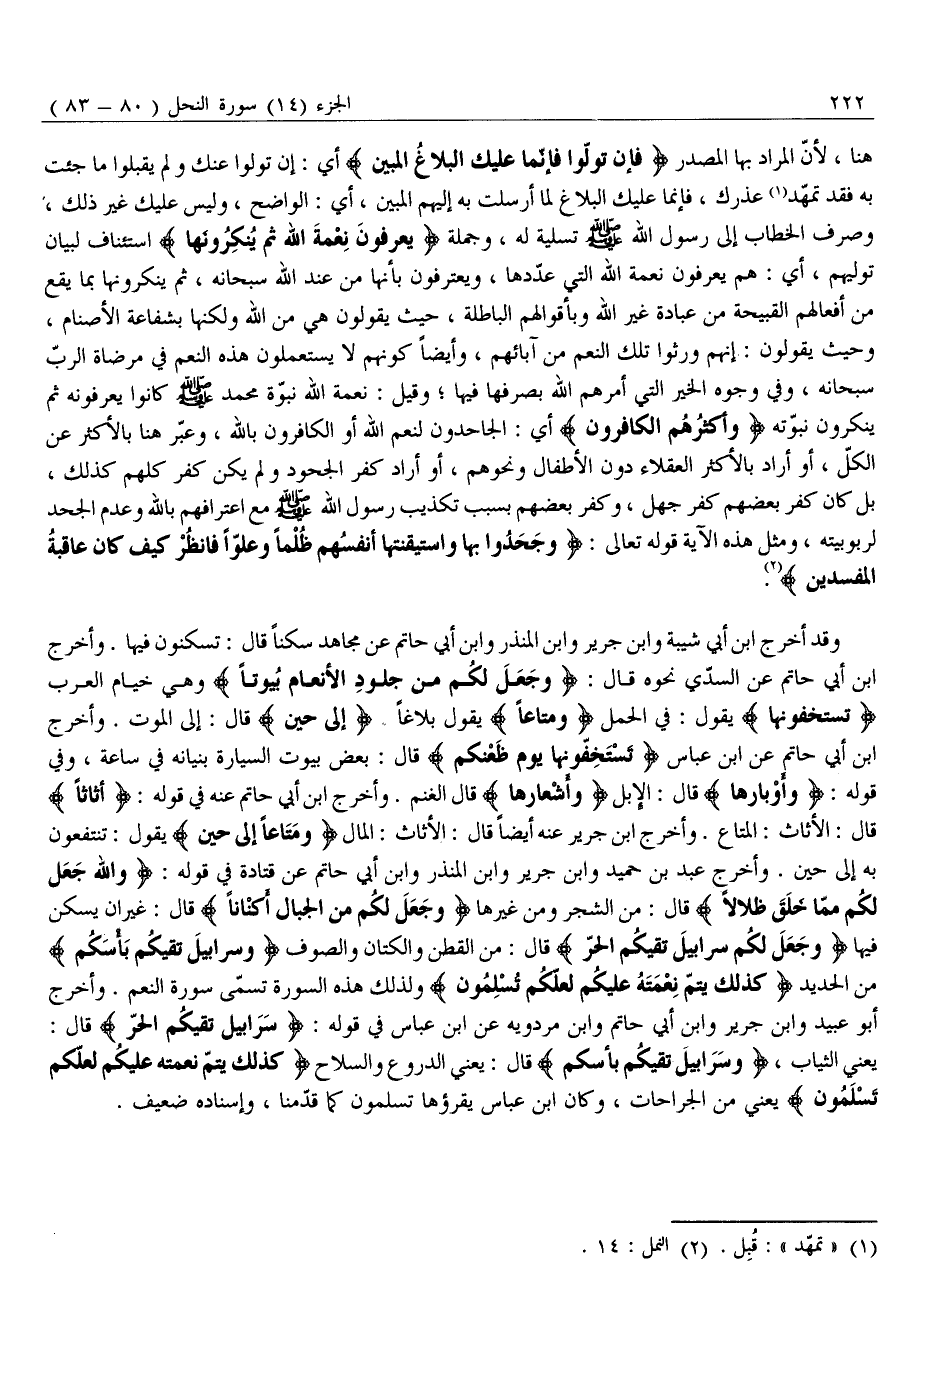 ٢٢٢ الجزء (١٤) سورة النحل ( ٨٠ – ٨٣ )
هنا ، لأنّ المراد بها المصدر ﴿ فإن تولّوا فإنّما عليك البلاغُ المبين ﴾ أي : إن تولوا عنك ولم يقبلوا ما جئت
به فقد تمهّد(١) عذرك ، فإنما عليك البلاغ لما أرسلت به إليهم المبين ، أي : الواضح ، وليس عليك غير ذلك ،
وصرف الخطاب إلى رسول الله ﷺ تسلية له ، وجملة ﴿ يعرفونَ نِعْمةَ الله ثم يُنكِرُونَها ﴾ استئناف لبيان
توليهم ، أي : هم يعرفون نعمة الله التي عدّدها ، ويعترفون بأنها من عند الله سبحانه ، ثم ينكرونها بما يقع
من أفعالهم القبيحة من عبادة غير الله وبأقوالهم الباطلة ، حيث يقولون هي من الله ولكنها بشفاعة الأصنام ،
وحيث يقولون : إنهم ورثوا تلك النعم من آبائهم ، وأيضاً كونهم لا يستعملون هذه النعم في مرضاة الربّ
سبحانه ، وفي وجوه الخير التي أمرهم الله بصرفها فيها ؛ وقيل : نعمة الله نبوّة محمد ﷺ كانوا يعرفونه ثم
ينكرون نبوّته ﴿ وأكثرُهُم الكافرون ﴾ أي : الجاحدون لنعم الله أو الكافرون بالله ، وعبّر هنا بالأكثر عن
الكلّ ، أو أراد بالأكثر العقلاء دون الأطفال ونحوهم ، أو أراد كفر الجحود ولم يكن كفر كلهم كذلك ،
بل كان كفر بعضهم كفر جهل ، وكفر بعضهم بسبب تكذيب رسول الله ﷺ مع اعترافهم بالله وعدم الجحد
لربوبيته ، ومثل هذه الآية قوله تعالى : ﴿ وجَحَدُوا بها واستيقنتها أنفسُهم ظُلْماً وعلوّاً فانظُرْ كيف كان عاقبةُ
المفسدين ﴾(٢).
وقد أخرج ابن أبي شيبة وابن جرير وابن المنذر وابن أبي حاتم عن مجاهد سكناً قال : تسكنون فيها . وأخرج
ابن أبي حاتم عن السدّي نحوه قال : ﴿ وجَعَلَ لكُم من جلودِ الأنعام بُيوتاً ﴾ وهي خيام العرب
﴿ تستخفونها ﴾ يقول : في الحمل ﴿ ومتاعاً ﴾ يقول بلاغاً . ﴿ إلى حين ﴾ قال : إلى الموت . وأخرج
ابن أبي حاتم عن ابن عباس ﴿ تَسْتَخِفّونها يوم ظَعْنكم ﴾ قال : بعض بيوت السيارة بنيانه في ساعة ، وفي
قوله : ﴿ وأَوْبارها ﴾ قال : الإبل ﴿ وأَشْعارها ﴾ قال الغنم . وأخرج ابن أبي حاتم عنه في قوله : ﴿ أثاثاً ﴾
قال : الأثاث : المتاع . وأخرج ابن جرير عنه أيضاً قال : الأثاث : المال ﴿ ومَتَاعاً إلى حين ﴾ يقول : تنتفعون
به إلى حين . وأخرج عبد بن حميد وابن جرير وابن المنذر وابن أبي حاتم عن قتادة في قوله : ﴿ والله جَعَل
لكُم ممّا خلَق ظلالاً ﴾ قال : من الشجر ومن غيرها ﴿ وجَعَلَ لكُم من الجبال أكْناناً ﴾ قال : غيران يسكن
فيها ﴿ وجَعَلَ لكُم سرابيلَ تقيكُم الحرّ ﴾ قال : من القطن والكتان والصوف ﴿ وسرابيلَ تقيكُم بَأْسَكُم ﴾
من الحديد ﴿ كذلك يتمّ نِعْمَتَهُ عليكُم لعلّكُم تُسْلِمُون ﴾ ولذلك هذه السورة تسمّى سورة النعم . وأخرج
أبو عبيد وابن جرير وابن أبي حاتم وابن مردويه عن ابن عباس في قوله : ﴿ سَرَابيلَ تقيكُم الحرّ ﴾ قال :
يعني الثياب ، ﴿ وسَرَابيلَ تقيكُم بأسكم ﴾ قال : يعني الدروع والسلاح ﴿ كذلك يتمّ نعمته عليكُم لعلّكم
تَسْلَمُون ﴾ يعني من الجراحات ، وكان ابن عباس يقرؤها تسلمون كما قدّمنا ، وإسناده ضعيف .
(١) « تمهّد » : قُبِل . (٢) النمل : ١٤ .